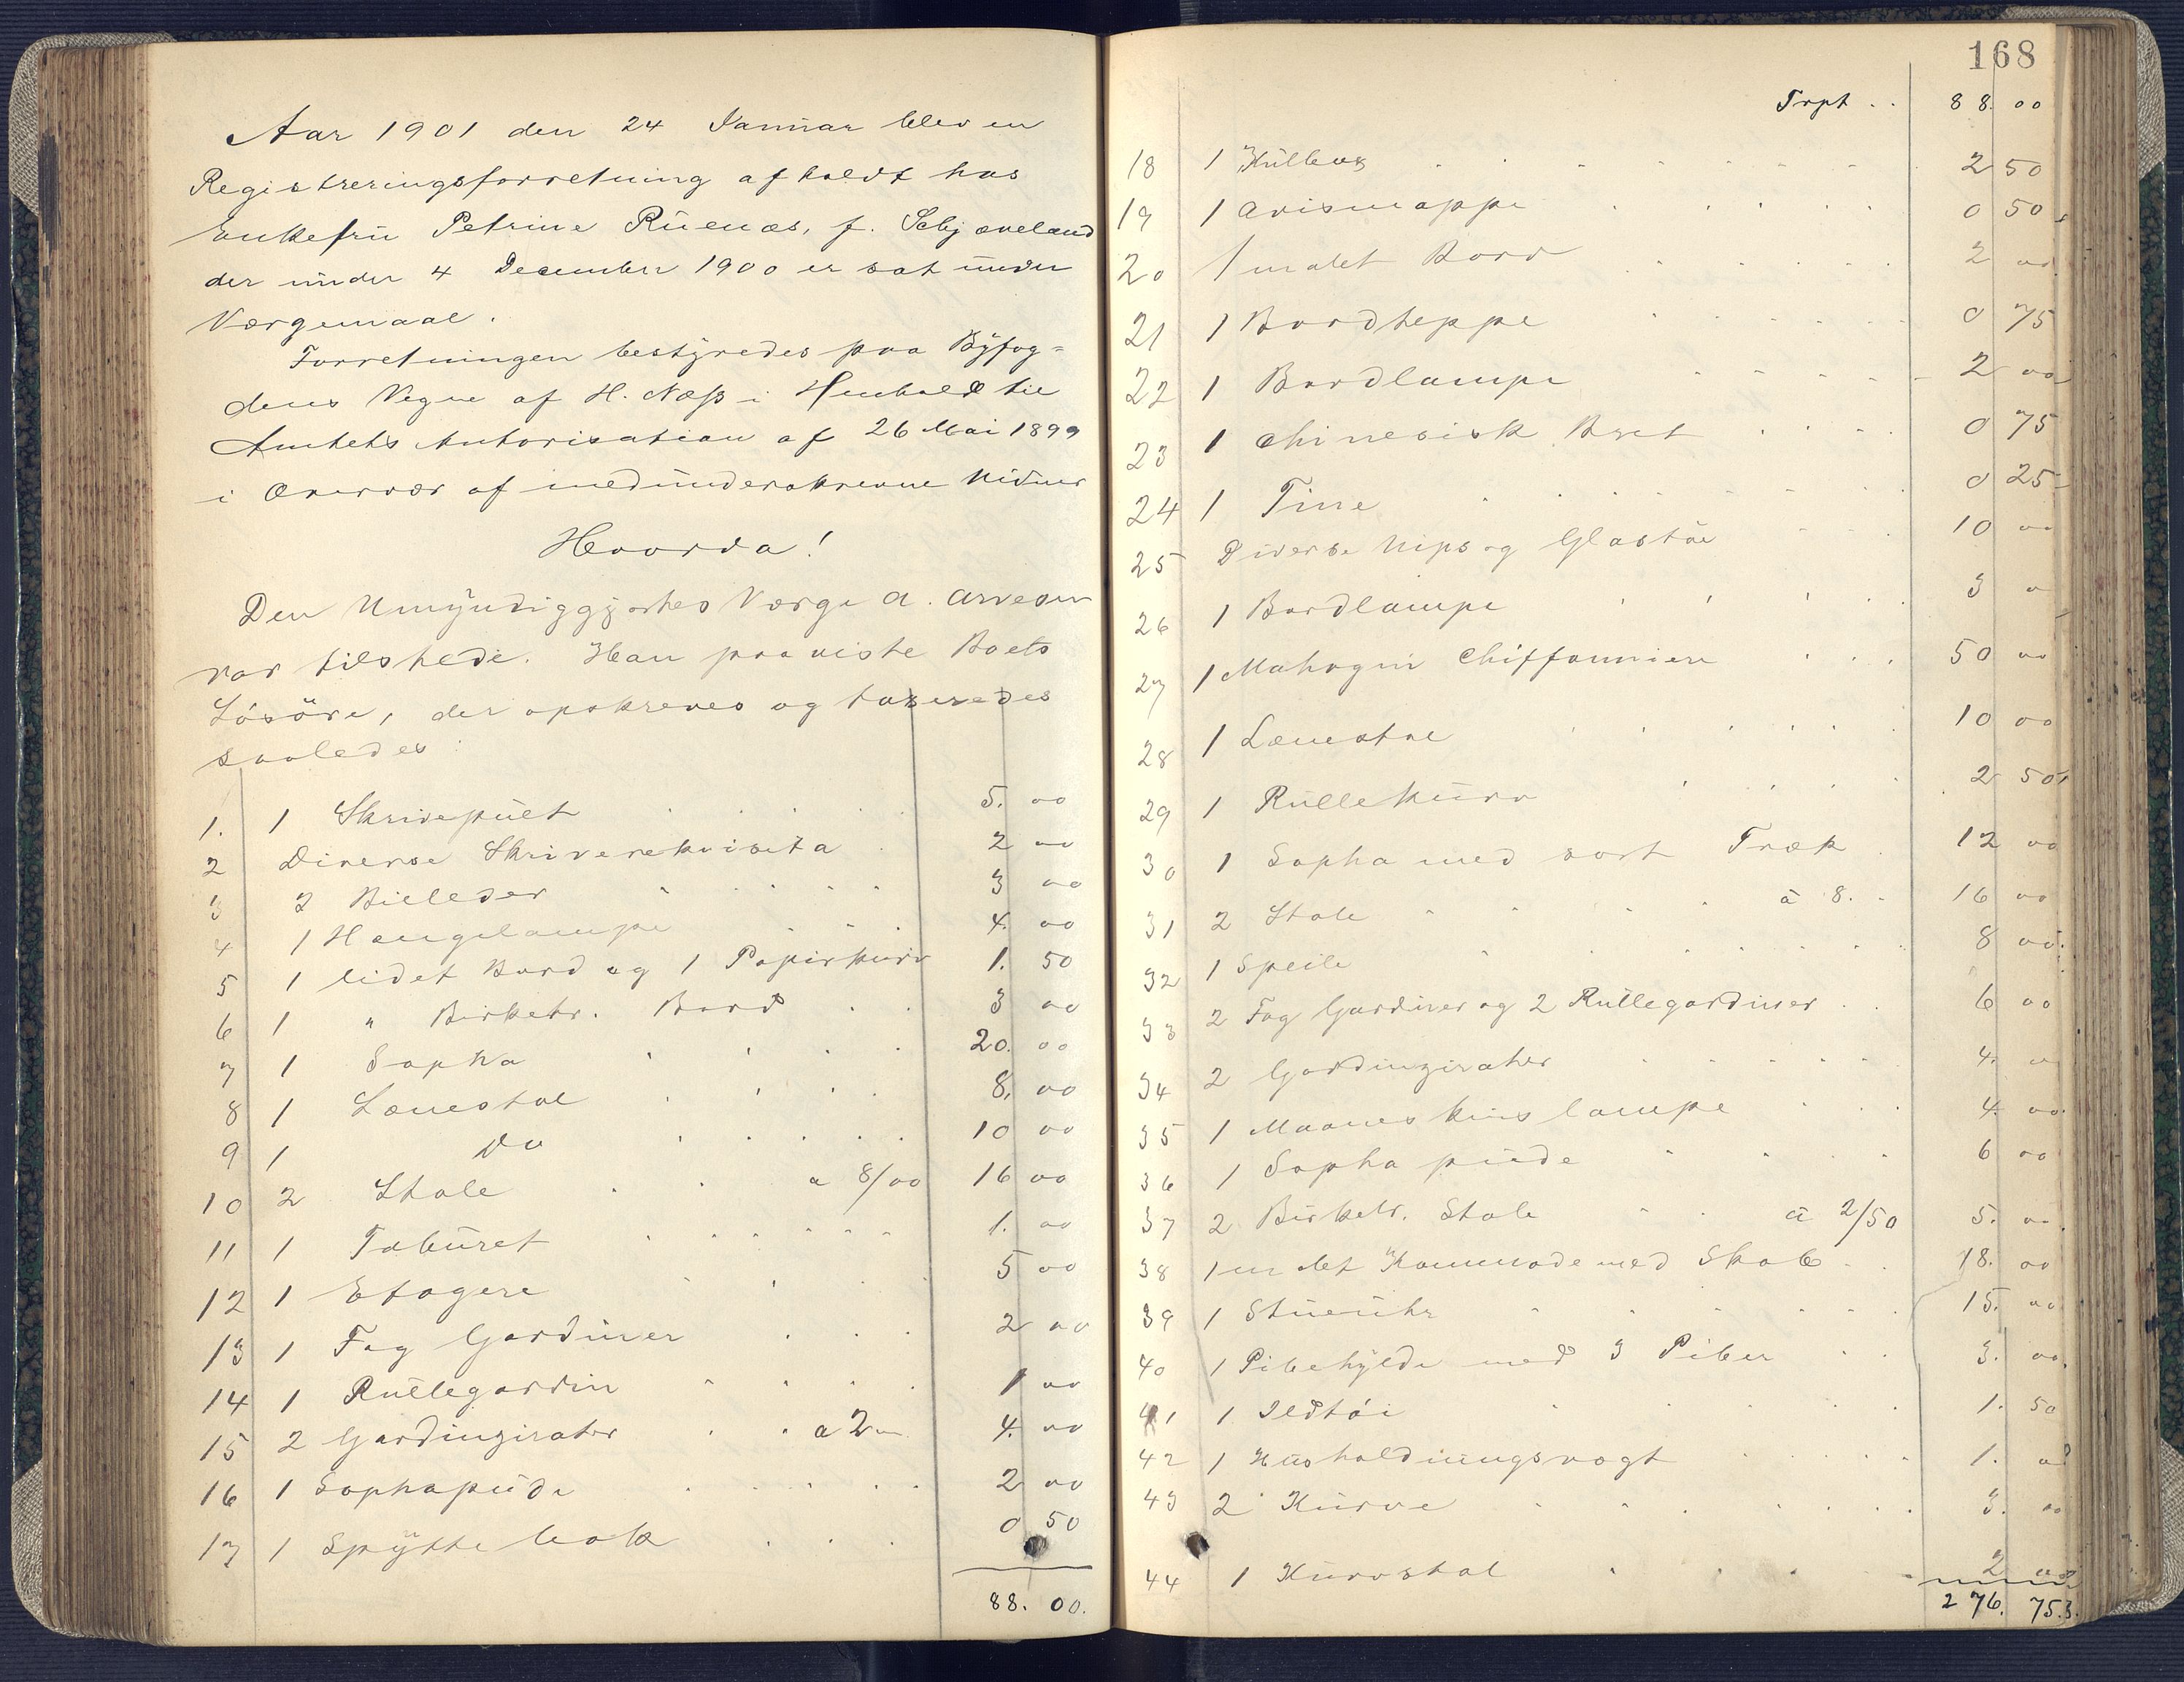 Aar 1901 den 24 Januar blev en
Registreringsforretning afholdt hos
Enkefru Petrine Ruenæs, f. Schjæveland
der under 4 December 1900 er sat under
Værgemaal.
Forretningen bestyredes paa Byfog=
dens Vegne af H. Næss i Henhold til
Amtets Autorisation af 26 Mai 1899
i Overvær af medunderskrevne Vidner
Hvorda!
Den Umyndiggjortes Værge A. Arvesen
var tilstede. Han paaviste Boets
Lösöre, der opskreves og taxeredes
saaledes:
1. 1 Skrivepult 5. 00
2 Diverse Skriverekvisita 2 00
3 2 Billeder 3 00
4 1 Hængelampe 4. 00
5 1 lidet Bord og 1 Papirkurv 1. 50
6 1 " Birketr. Bord 3 00
7 1 Sopha 20. 00
8 1 Lænestol 8. 00
9 1 Do 10 00
10 2 Stole a 8/00 16 00
11 1 Taburet 1. 00
12 1 Etagere 5 00
13 1 Fag Gardiner 2 00
14 1 Rullegardin 1 00
15 2 Gardinzirater a 2 4. 00
16 1 Sophapude 2 00
17 1 Spyttebak 0 50
88. 00.
168
Trpt .. 88. 00
18 1 2 50
19 1 Avismappe 0 50
20 1 malet Bord 2 00
21 1 Bordteppe 0 75
22 1 Bordlampe 2 00
23 1 Chinesisk Bret 0 75
24 1 Tine 0 25
25 Diverse Nips og Glastöi 10 00
26 1 Bordlampe 3 00
27 1 Mahogni Chiffonniere 50 00
28 1 Lænestol 10 00
29 1 Rullekurv 2 50
30 1 Sopha med sort Træk 12 00
31 2 Stole à 8. 16 00
32 1 Speile 8 00
33 2 Fag Gardiner og 2 Rullegardiner 6 00
34 2 Gardinzirater 4. 00
35 1 Maaneskinslampe 4. 00
36 1 Sopha pude 6 00
37 2 Birketr. Stole à 2/50 5. 00
38 1 malet Kommode med Skab 18. 00
39 1 Stueuhr 15. 00
40 1 Pibehylde med 3 Piber 3. 00
41 1 Ildtöi 1. 50
42 1 Husholdningsvægt 1. 00
43 2 Kurve 3. 00
44 1 Kurvstol 2 00
276. 75.